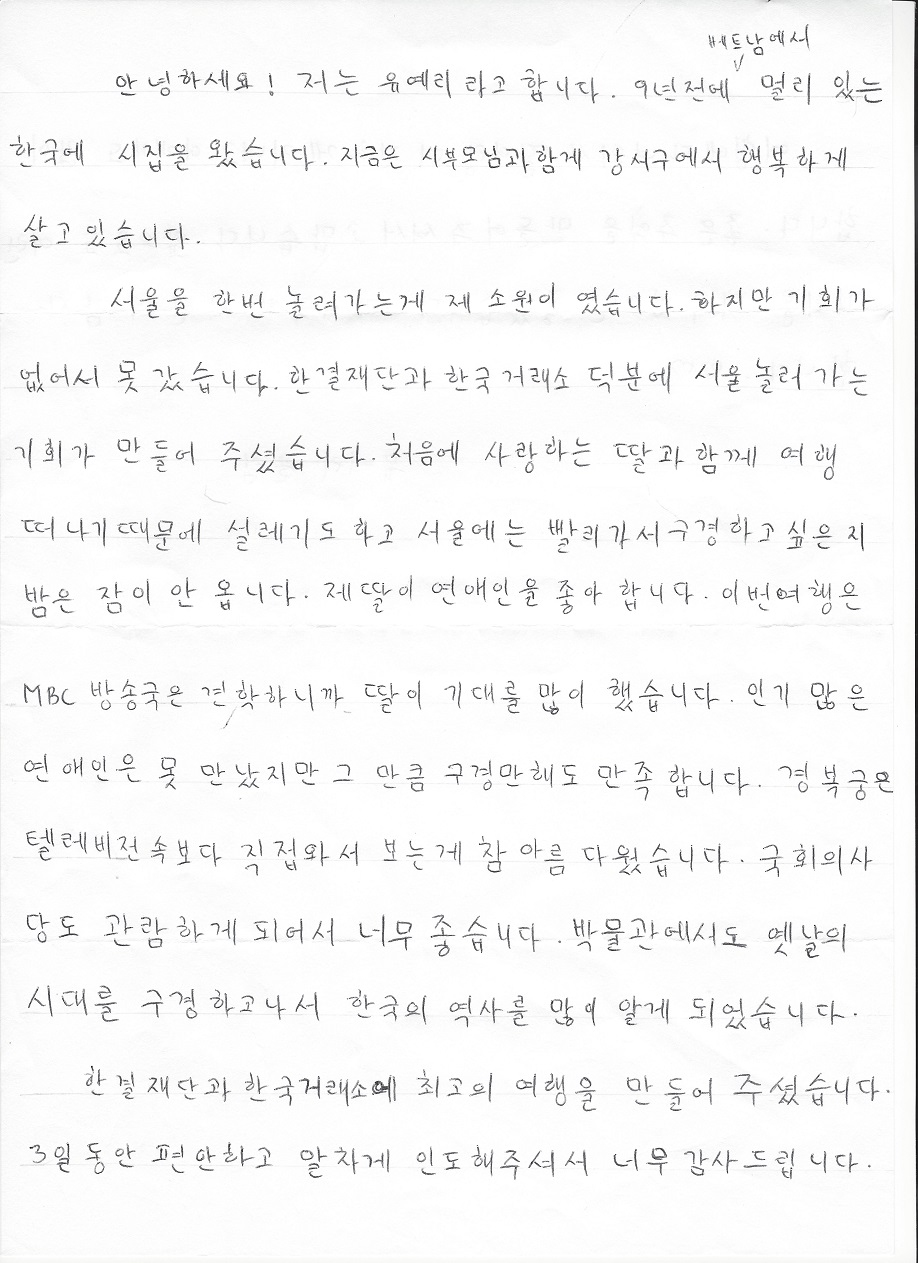 베트남에서
안녕하세요! 저는 유예리 라고 합니다. 9년전에 멀리 있는
한국에 시집을 왔습니다. 지금은 시부모님과함께 강서구에서 행복하게
살고 있습니다.
서울을 한번 놀려가는게 제 소원이 였습니다. 하지만 기회가
없어서 못 갔습니다. 한결재단과 한국거래소 덕분에 서울놀러 가는
기회가 만들어 주셨습니다. 처음에 사랑하는 딸과함께 여행
떠나기때문에 설레기도하고 서울에는 빨리가서구경하고싶은지
밤은 잠이 안 옵니다. 제딸이 연애인을 좋아 합니다. 이번여행은
MBC 방송국은 견학하니까 딸이 기대를 많이 했습니다. 인기 많은
연애인은 못 만났지만 그 만큼 구경만해도 만족합니다. 경복궁은
텔레비전속보다 직접와서 보는게 참 아름 다웠습니다. 국회의사
당도 관람하게 되어서 너무 좋습니다. 박물관에서도 옛날의
시대를 구경하고나서 한국의 역사를 많이 알게 되었습니다.
한결재단과 한국거래소에 최고의 여행을 만들어 주셨습니다.
3일동안 편안하고 알차게 인도해주셔서 너무감사드립니다.